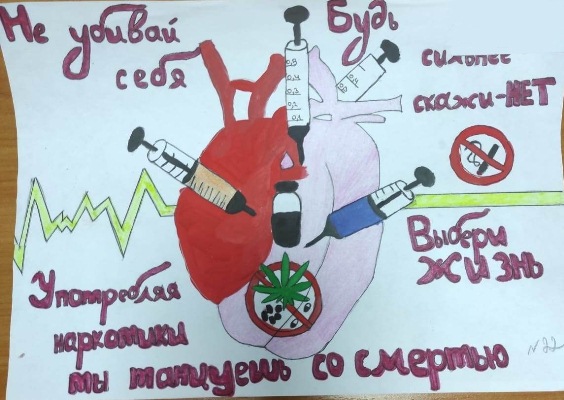 Не убивай
себя
Будь
сильнее
скажи-НЕТ
0,4
0,3
0,2
0,1
Выбери
ЖИЗНЬ
Употребляя
наркотики
ты танцуешь со смертью
№22